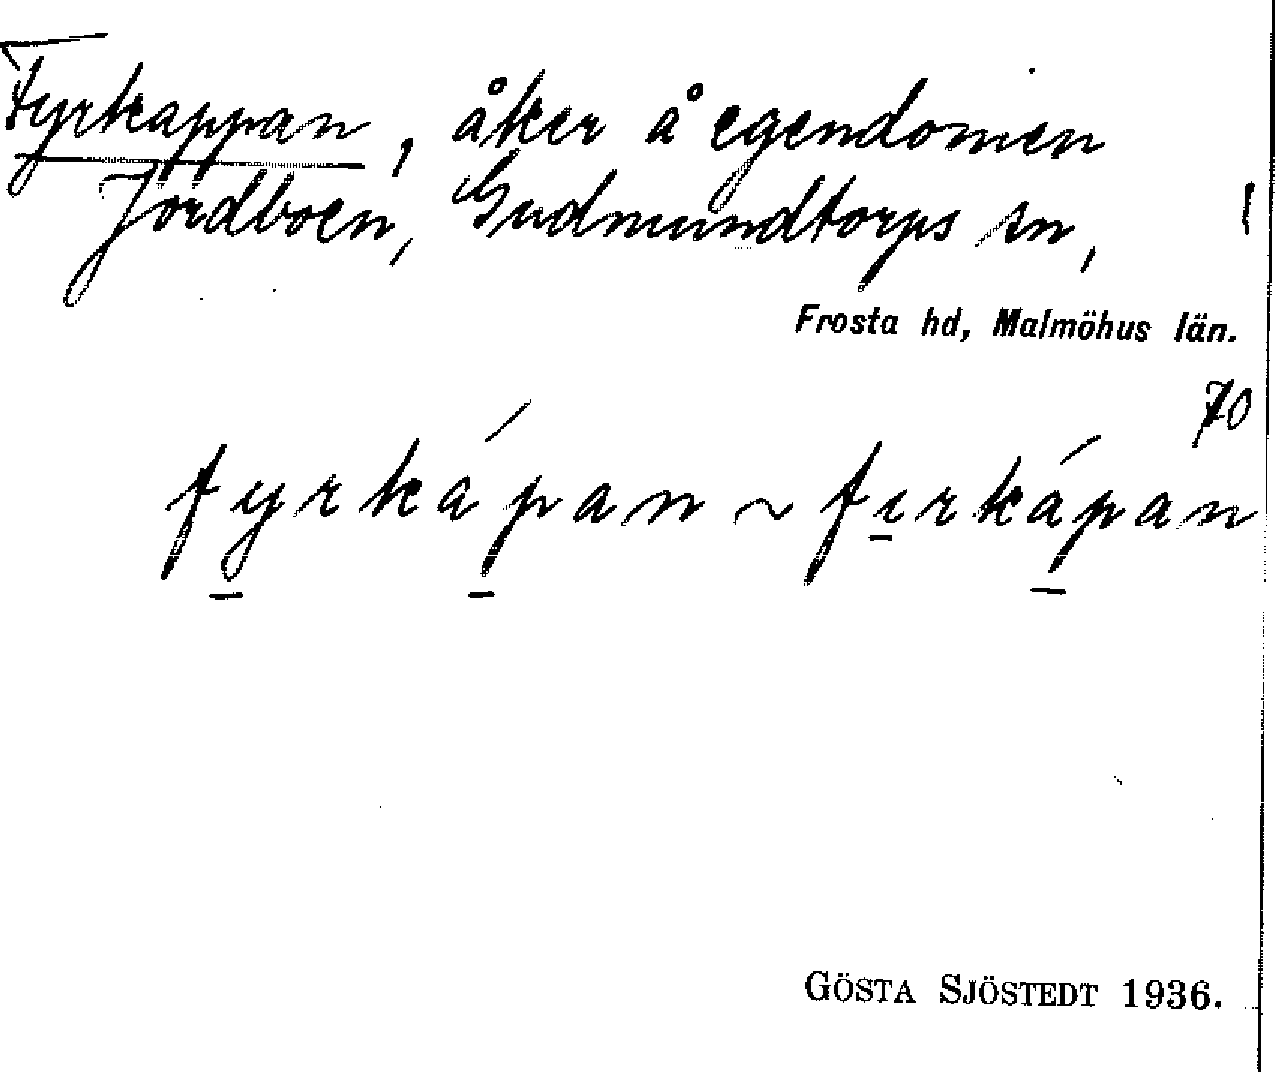 Fyrkappan, åker å egendomen
Jordboen, Gudmundtorps sn,
Frosta hd, Malmöhus län.
70
fyrkápan ~ fırkápan
GÖSTA SJÖSTEDT 1936.